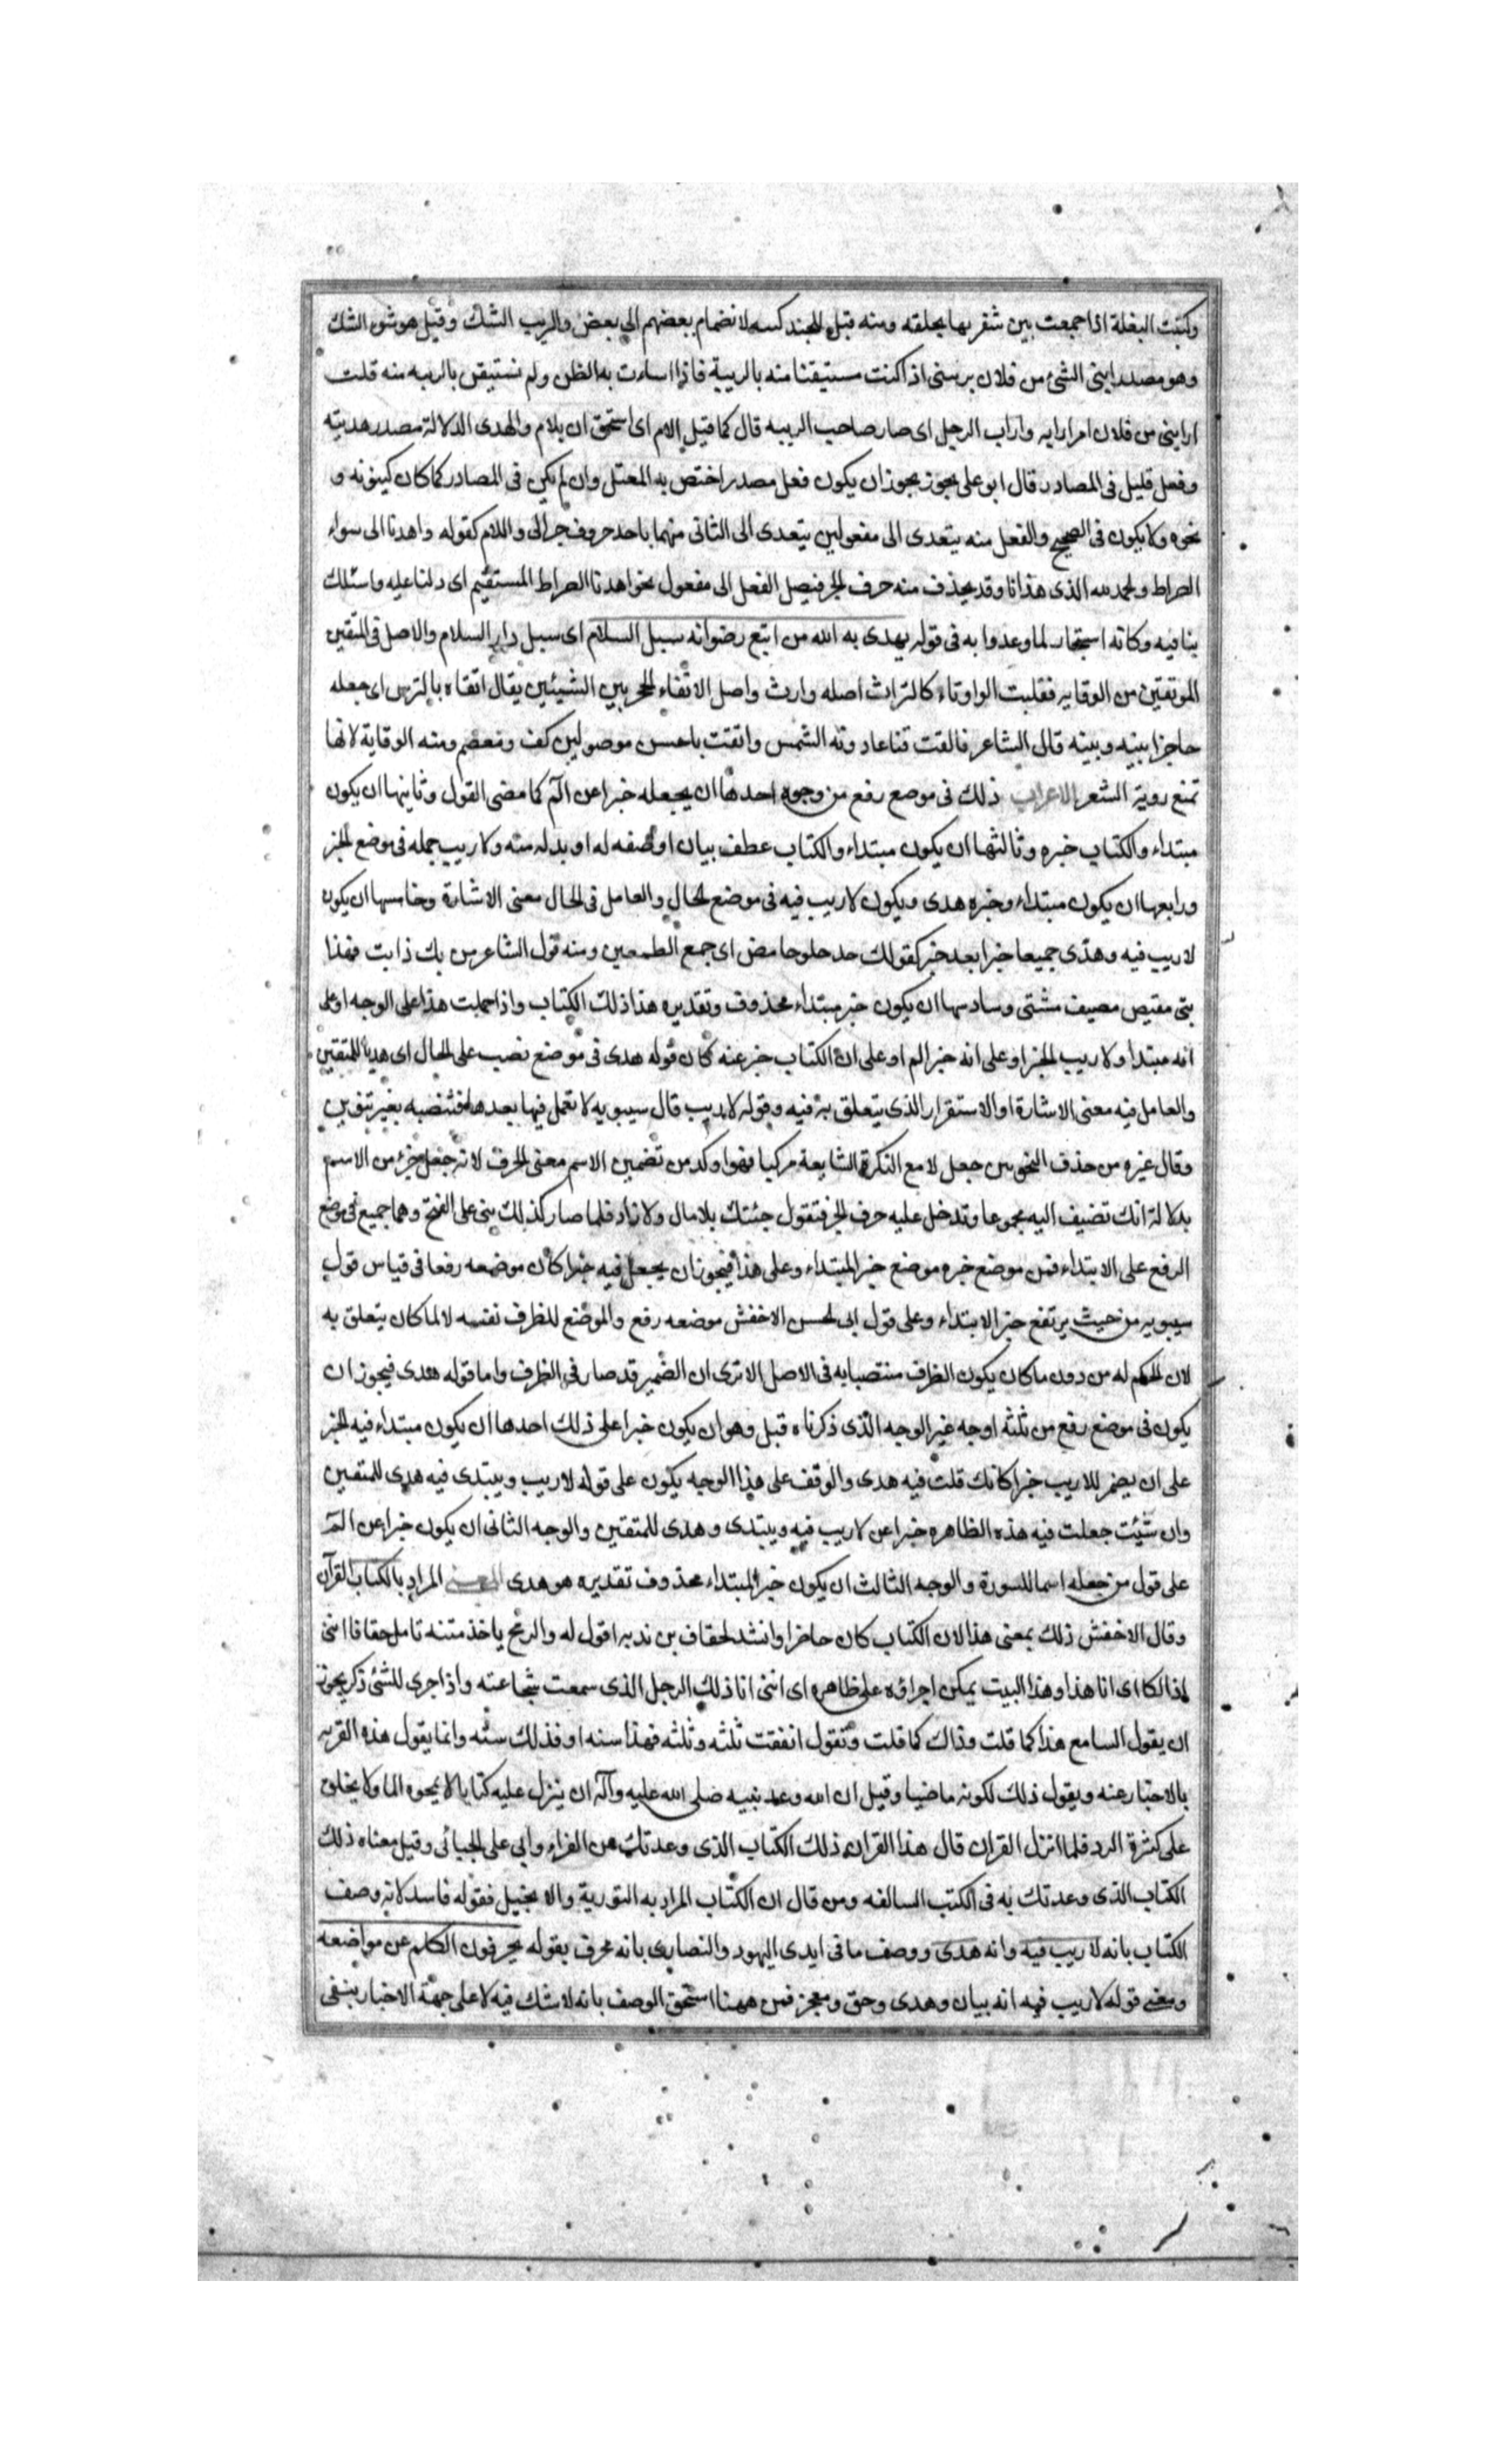 وكتبت البغلة اذا جمعت بين شفريها بحلقه ومنه قيل للجند كتيبه لانضمام بعضهم الى بعض والريب الشك وقيل هو شر الشك
وهو مصدر رابنى الشئ من فلان يريبنى اذا كنت مستيقنا منه بالريبة فاذا اساءت به الظن ولم تستيقن بالريبه منه قلت
ارابنى من فلان امر ارابه واراب الرجل اى صار صاحب الريبه قال كما قيل الام اى استحق ان يلام والهدى الدلالة مصدر هديته
وفعل قليل فى المصادر قال ابو على يجوز يجوز ان يكون فعل مصدر اختص به المعتل وان لم يكن فى المصادر كما كان كينونه و
نحوه ولا يكون فى الصحيح والفعل منه يتعدى الى مفعولين يتعدى الى الثانى منهما باحد حروف جر الى واللام كقوله واهدنا الى سواء
الصراط والحمد لله الذى هدانا وقد يحذف منه حرف الجر فيصل الفعل الى مفعول نحو اهدنا الصراط المستقيم اى دلنا عليه واسئلك
بنا فيه وكانه استنجاز لما وعدوا به فى قوله يهدى به الله من اتبع رضوانه سبل السلام اى سبل دار السلام والاصل فى المتقين
الموتقين من الوقايه فقلبت الواو تاء كالتراث اصله وارث واصل الاتقاء الحجز بين الشيئين يقال اتقاه بالترس اى جعله
حاجزا بينه وبينه قال الشاعر فالقت قناعا دونه الشمس واتقت باحسن موصولين كف ومعصم ومنه الوقاية لانها
تمنع روية الشعر الاعراب ذلك فى موضع رفع من وجوه احدها ان يجعله خبرا عن الم كما مضى القول وثانيها ان يكون
مبتداء والكتاب خبره وثالثها ان يكون مبتداء والكتاب عطف بيان او صفه له او بدله منه ولا ريب جمله فى موضع الخبر
ورابعها ان يكون مبتداء وخبره هدى ويكون لا ريب فيه فى موضع الحال والعامل فى الحال معنى الاشارة وخامسها ان يكون
لا ريب فيه وهدى جميعا خبرا بعد خبر كقولك حد حلو حامض اى جمع الطعمين ومنه قول الشاعر من يك ذا بت فهذا
بتى مقيص مصيف مشتى وسادسها ان يكون خبر مبتداء محذوف وتقديره هذا ذلك الكتاب واذا حملت هذا على الوجه او على
انه مبتدا ولا ريب الخبر او على انه خبر الم او على ان الكتاب خبر عنه كان قوله هدى فى موضع نصب على الحال اى هديا للمتقين
والعامل فيه معنى الاشارة او الاستقرار الذى يتعلق به فيه وقوله لا ريب قال سيبويه لا تعمل فيها بعدها فتنصبه بغير تنوين
وقال غيره من حذف النحويين جعل لا مع النكرة الشايعة مركبا فهو اوكد من تضمين الاسم معنى الحرف لانه جعل جزء من الاسم
بدلالة انك تضيف اليه مجموعا وتدخل عليه حرف الجر فتقول جئتك بلا مال ولا زاد فلما صار كذلك بنى على الفتح وهما جميع فى موضع
الرفع على الابتداء فمن موضع خبره موضع خبر المبتداء وعلى هذا فيجوز ان يجعل فيه خبرا كان موضعه رفعا فى قياس قول
سيبويه من حيث يرتفع خبر الابتداء وعلى قول ابى الحسن الاخفش موضعه رفع والموضع للظرف نفسه لا لما كان يتعلق به
لان الحكم له من دون ما كان يكون الظرف منتصبا به فى الاصل الا ترى ان الضمير قد صار فى الظرف واما قوله هدى فيجوز ان
يكون فى موضع رفع من ثلثه اوجه غير الوجه الذى ذكرناه قبل وهو ان يكون خبرا على ذلك احدها ان يكون مبتداء فيه الخبر
على ان يضمر للاريب خبرا كانك قلت فيه هدى والوقف على هذا الوجه يكون على قوله لا ريب ويبتدى فيه هدى للمتقين
وان شئت جعلت فيه هذه الظاهره خبرا عن لا ريب فيه ويبتدى وهدى للمتقين والوجه الثانى ان يكون خبرا عن الم
على قول من جعله اسما للسورة والوجه الثالث ان يكون خبرا لمبتداء محذوف تقديره هو هدى المعنى المراد بالكتاب القرآن
وقال الاخفش ذلك بمعنى هذا لان الكتاب كان حاضرا وانشد لخفاف بن ندبه اقول له والرمح ياخذ متنه تامل خفافا اننى
انا ذالكا اى انا هذا وهذا البيت يمكن اجراؤه على ظاهره اى اننى انا ذلك الرجل الذى سمعت شجاعته واذا جرى للشئ ذكر يجوز
ان يقول السامع هذا كما قلت وذاك كما قلت وتقول انفقت ثلثه وثلثه فهذا سته او فذلك سته وانما يقول هذه القربه
بالاخبار عنه ويقول ذلك لكونه ماضيا وقيل ان الله وعد نبيه صلى الله عليه وآله ان ينزل عليه كتابا لا يمحوه الما ولا يخلق
على كثرة الرد فلما انزل القران قال هذا القران ذلك الكتاب الذى وعدتك عن الفراء وابى على الجبائى وقيل معناه ذلك
الكتاب الذى وعدتك به فى الكتب السالفه ومن قال ان الكتاب المراد به التورية والانجيل فقوله فاسد لانه وصف
الكتاب بانه لا ريب فيه وانه هدى ووصف ما فى ايدى اليهود والنصارى بانه محرف بقوله يحرفون الكلم عن مواضعه
ومعنى قوله لا ريب فيه انه بيان وهدى وحق ومعجز فمن ههنا استحق الوصف بانه لا شك فيه لا على جهة الاخبار بنفى